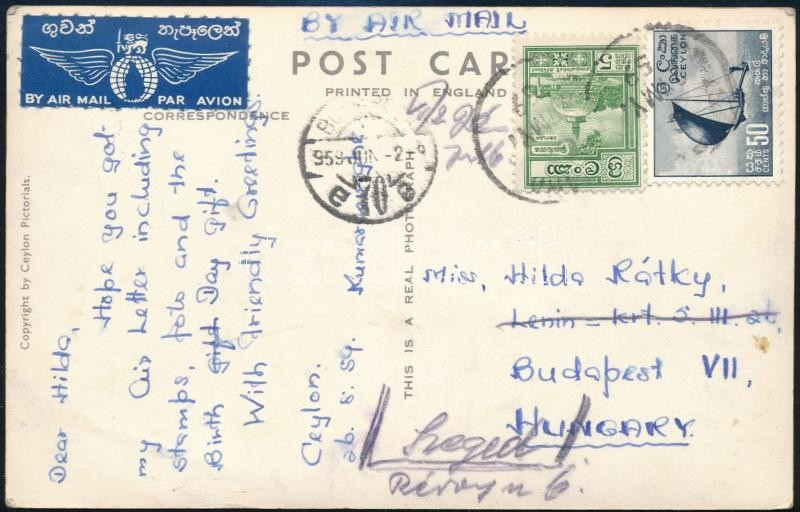 ගුවන් තැපෑලෙන්
BY AIR MAIL PAR AVION
BY AIR MAIL
POST CAR
PRINTED IN ENGLAND
CORRESPONDENCE
Copyright by Ceylon Pictorials.
THIS IS A REAL PHOTOGRAPH
Dear Hilda,
Hope you got
my Air Letter including
stamps, foto and the
Birth gift Day gift.
With Friendly Greetings.
Ceylon.
26. 5. 59.
959 JUN -2
ශ්‍රී ලංකා
CEYLON
50
CENTS
ලංකා
Miss, Hilda Rátky,
Lenin-krt. 5. III. 26,
Budapest VII,
HUNGARY.
Szeged
6.